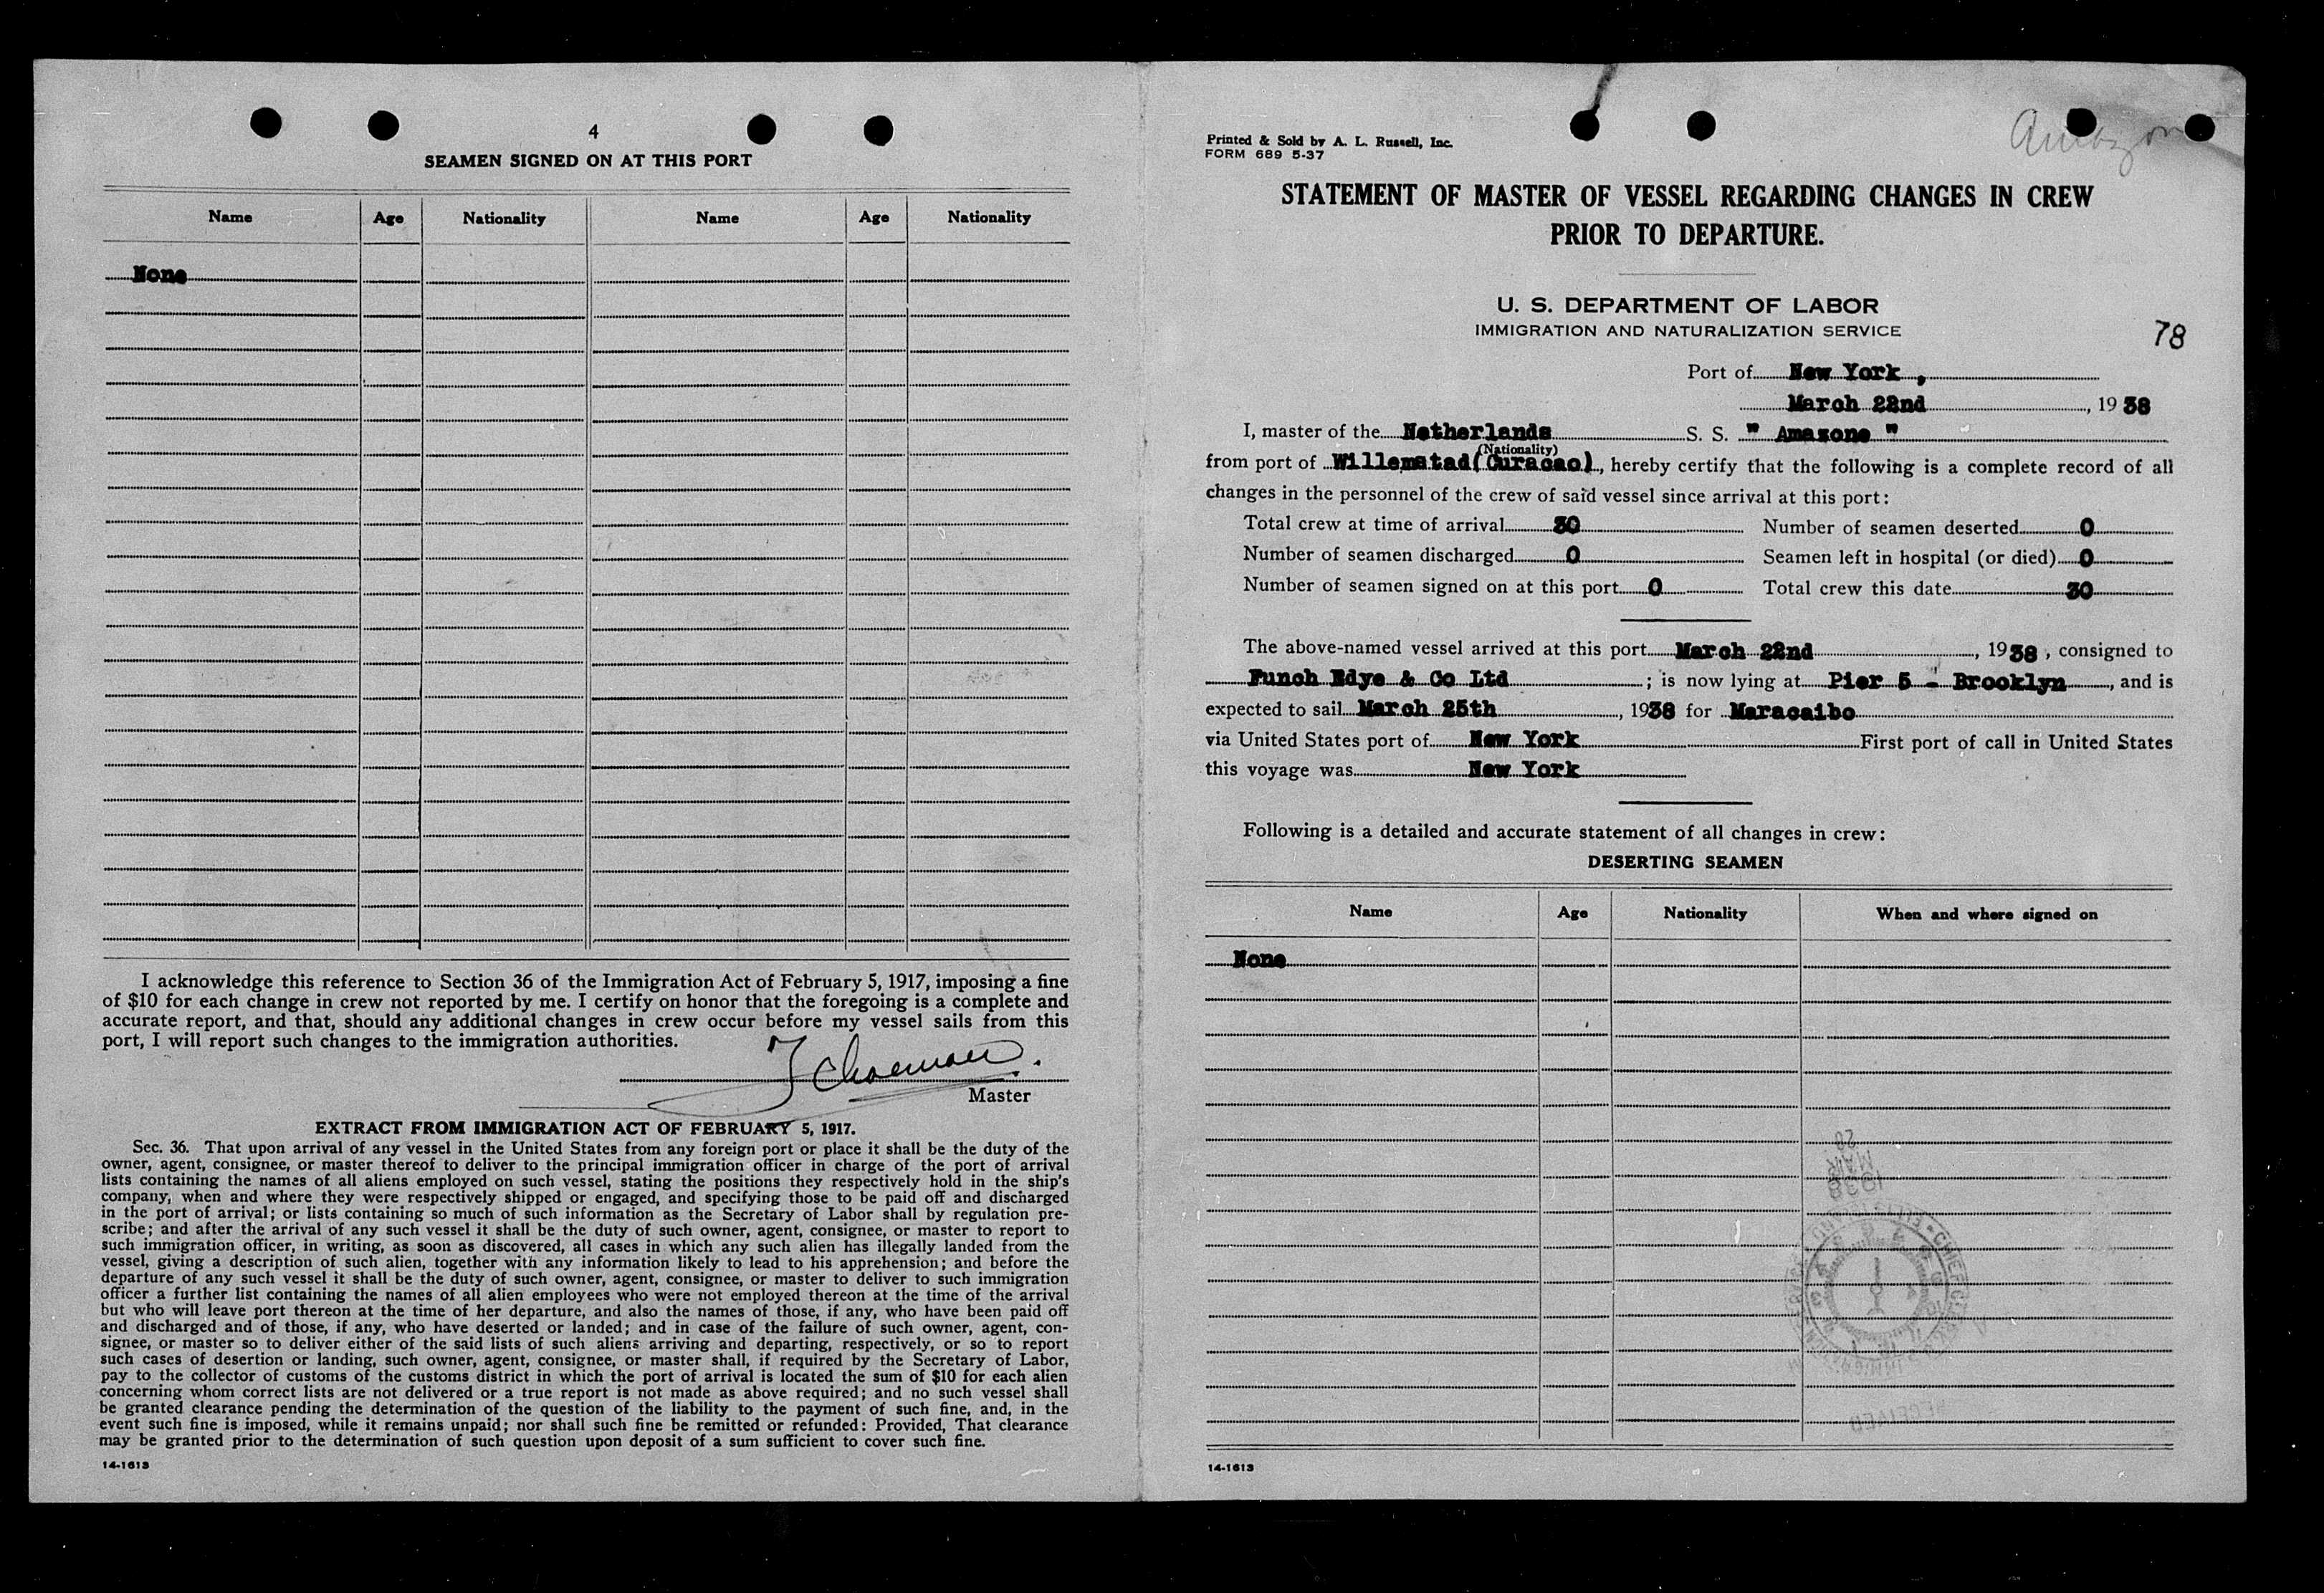 4
SEAMEN SIGNED ON AT THIS PORT
Name Age Nationality Name Age Nationality
None
I acknowledge this reference to Section 36 of the Immigration Act of February 5, 1917, imposing a fine
of $10 for each change in crew not reported by me. I certify on honor that the foregoing is a complete and
accurate report, and that, should any additional changes in crew occur before my vessel sails from this
port, I will report such changes to the immigration authorities.
Master
EXTRACT FROM IMMIGRATION ACT OF FEBRUARY 5, 1917.
Sec. 36. That upon arrival of any vessel in the United States from any foreign port or place it shall be the duty of the
owner, agent, consignee, or master thereof to deliver to the principal immigration officer in charge of the port of arrival
lists containing the names of all aliens employed on such vessel, stating the positions they respectively hold in the ship's
company, when and where they were respectively shipped or engaged, and specifying those to be paid off and discharged
in the port of arrival; or lists containing so much of such information as the Secretary of Labor shall by regulation pre-
scribe; and after the arrival of any such vessel it shall be the duty of such owner, agent, consignee, or master to report to
such immigration officer, in writing, as soon as discovered, all cases in which any such alien has illegally landed from the
vessel, giving a description of such alien, together with any information likely to lead to his apprehension; and before the
departure of any such vessel it shall be the duty of such owner, agent, consignee, or master to deliver to such immigration
officer a further list containing the names of all alien employees who were not employed thereon at the time of the arrival
but who will leave port thereon at the time of her departure, and also the names of those, if any, who have been paid off
and discharged and of those, if any, who have deserted or landed; and in case of the failure of such owner, agent, con-
signee, or master so to deliver either of the said lists of such aliens arriving and departing, respectively, or so to report
such cases of desertion or landing, such owner, agent, consignee, or master shall, if required by the Secretary of Labor,
pay to the collector of customs of the customs district in which the port of arrival is located the sum of $10 for each alien
concerning whom correct lists are not delivered or a true report is not made as above required; and no such vessel shall
be granted clearance pending the determination of the question of the liability to the payment of such fine, and, in the
event such fine is imposed, while it remains unpaid; nor shall such fine be remitted or refunded: Provided, That clearance
may be granted prior to the determination of such question upon deposit of a sum sufficient to cover such fine.
14-1613
Printed & Sold by A. L. Russell, Inc.
FORM 689 5-37
STATEMENT OF MASTER OF VESSEL REGARDING CHANGES IN CREW
PRIOR TO DEPARTURE.
U. S. DEPARTMENT OF LABOR
IMMIGRATION AND NATURALIZATION SERVICE
78
Port of New York ,
March 22nd , 1938
I, master of the Netherlands S. S. " Amazone "
(Nationality)
from port of Willemstad(Curacao), hereby certify that the following is a complete record of all
changes in the personnel of the crew of said vessel since arrival at this port:
Total crew at time of arrival 30 Number of seamen deserted 0
Number of seamen discharged 0 Seamen left in hospital (or died) 0
Number of seamen signed on at this port 0 Total crew this date 30
The above-named vessel arrived at this port March 22nd , 1938 , consigned to
Funch Edye & Co Ltd ; is now lying at Pier 5 - Brooklyn , and is
expected to sail March 25th , 1938 for Maracaibo
via United States port of New York First port of call in United States
this voyage was New York
Following is a detailed and accurate statement of all changes in crew:
DESERTING SEAMEN
Name Age Nationality When and where signed on
None
14-1613